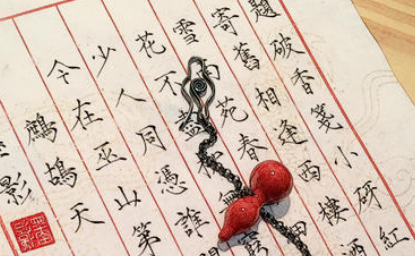 題破香箋小砑紅
寄舊相逢西樓酒
雪 苑春
花不盡柳無窮
少人同憑誰
今在巫山第
鷓鴣天
影